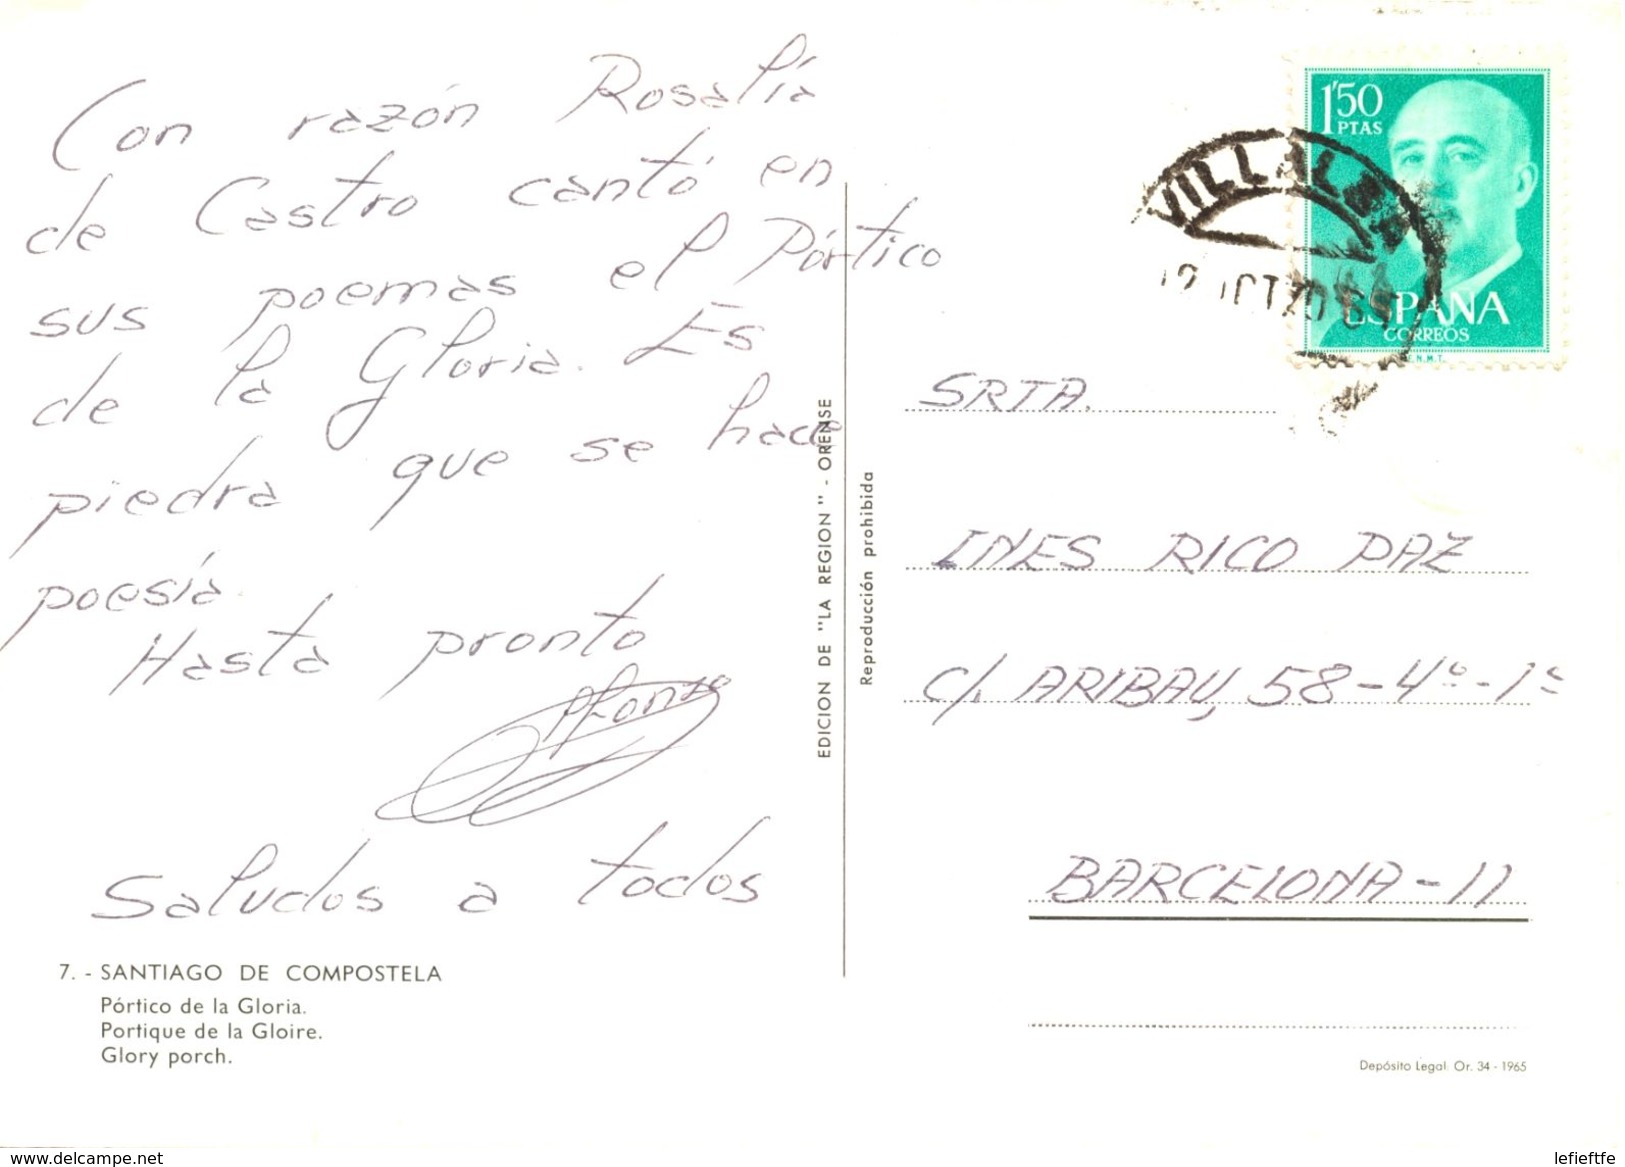 Con razón Rosalía
de Castro cantó en
sus poemas el Pórtico
de la Gloria. Es
piedra que se hace
poesía.
Hasta pronto
Alfonzo
Saludos a todos
7. - SANTIAGO DE COMPOSTELA
Pórtico de la Gloria.
Portique de la Gloire.
Glory porch.
EDICION DE "LA REGION" - ORENSE
Reproducción prohibida
1'50
PTAS
ESPAÑA
CORREOS
F.N.M.T.
VILLALBA
SRTA.
INES RICO PAZ
C/. ARIBAU, 58-4º-1ª
BARCELONA-11
Depósito Legal. Or. 34 - 1965
www.delcampe.net
lefieftfe